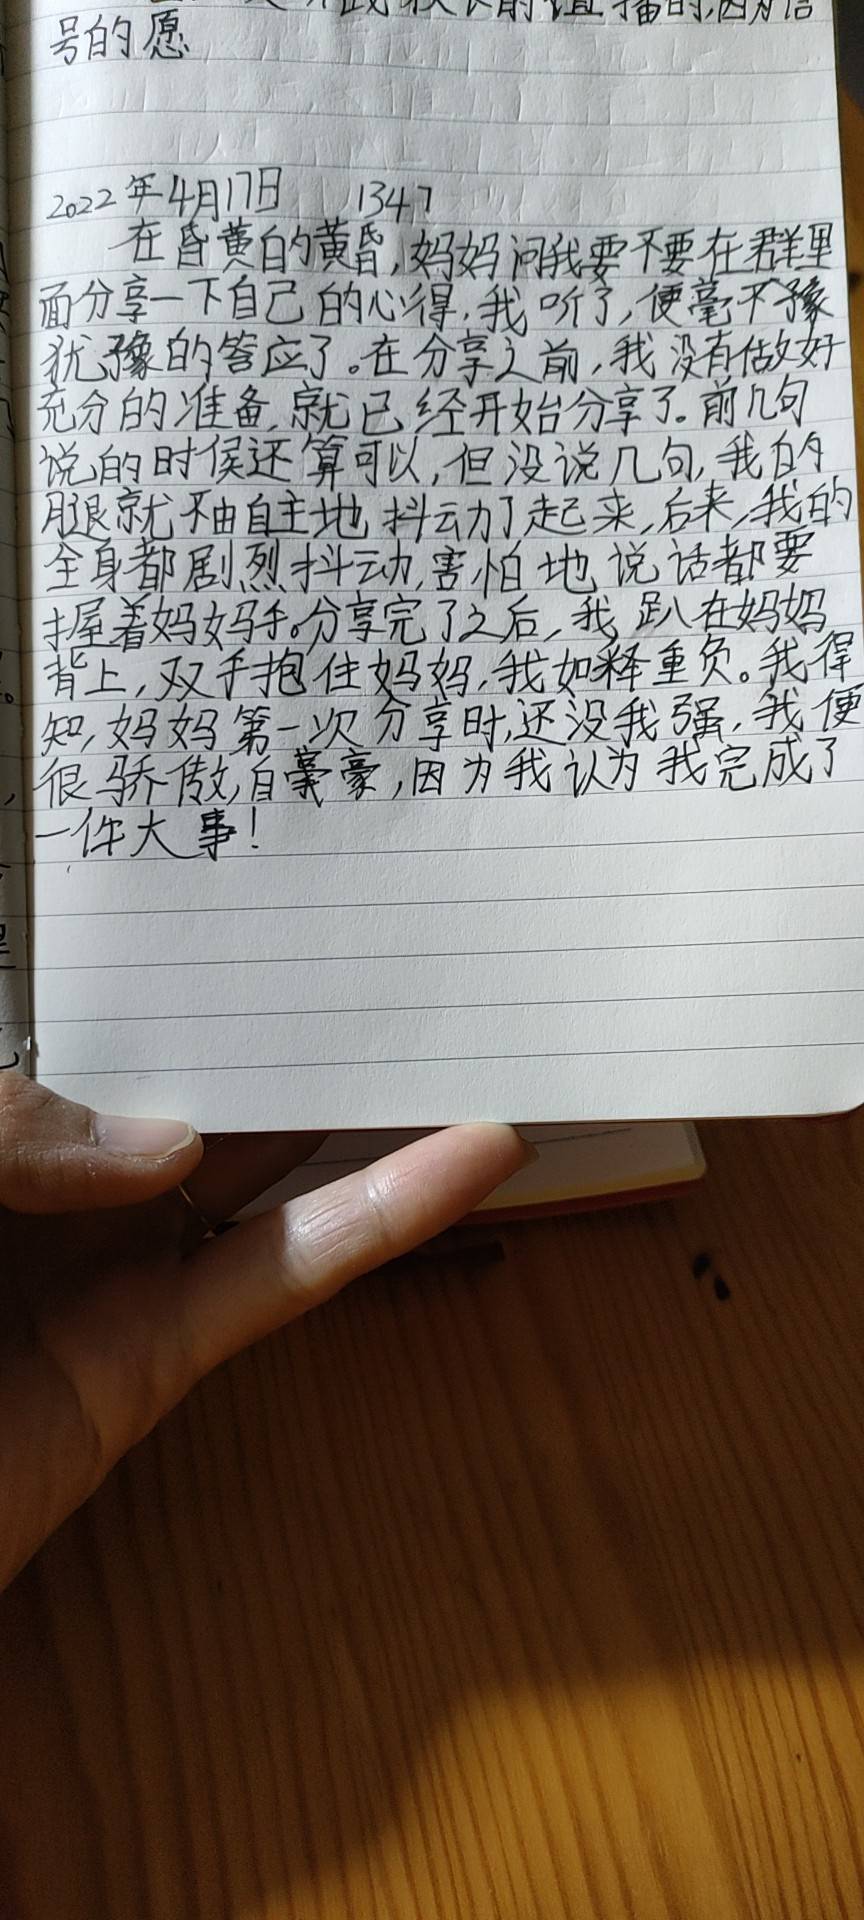 的,因为信
号的愿
2022年4月17日 1347
在昏黄的黄昏,妈妈问我要不要在群里
面分享一下自己的心得,我听了,便毫不豫
犹豫的答应了。在分享之前,我没有做好
充分的准备,就已经开始分享了。前几句
说的时候还算可以,但没说几句,我的
腿就不由自主地抖动了起来,后来,我的
全身都剧烈抖动,害怕地说话都要
握着妈妈手。分享完了之后,我趴在妈妈
背上,双手抱住妈妈,我如释重负。我得
知,妈妈第一次分享时,还没我强,我便
很骄傲,自豪,因为我认为我完成了
一件大事!